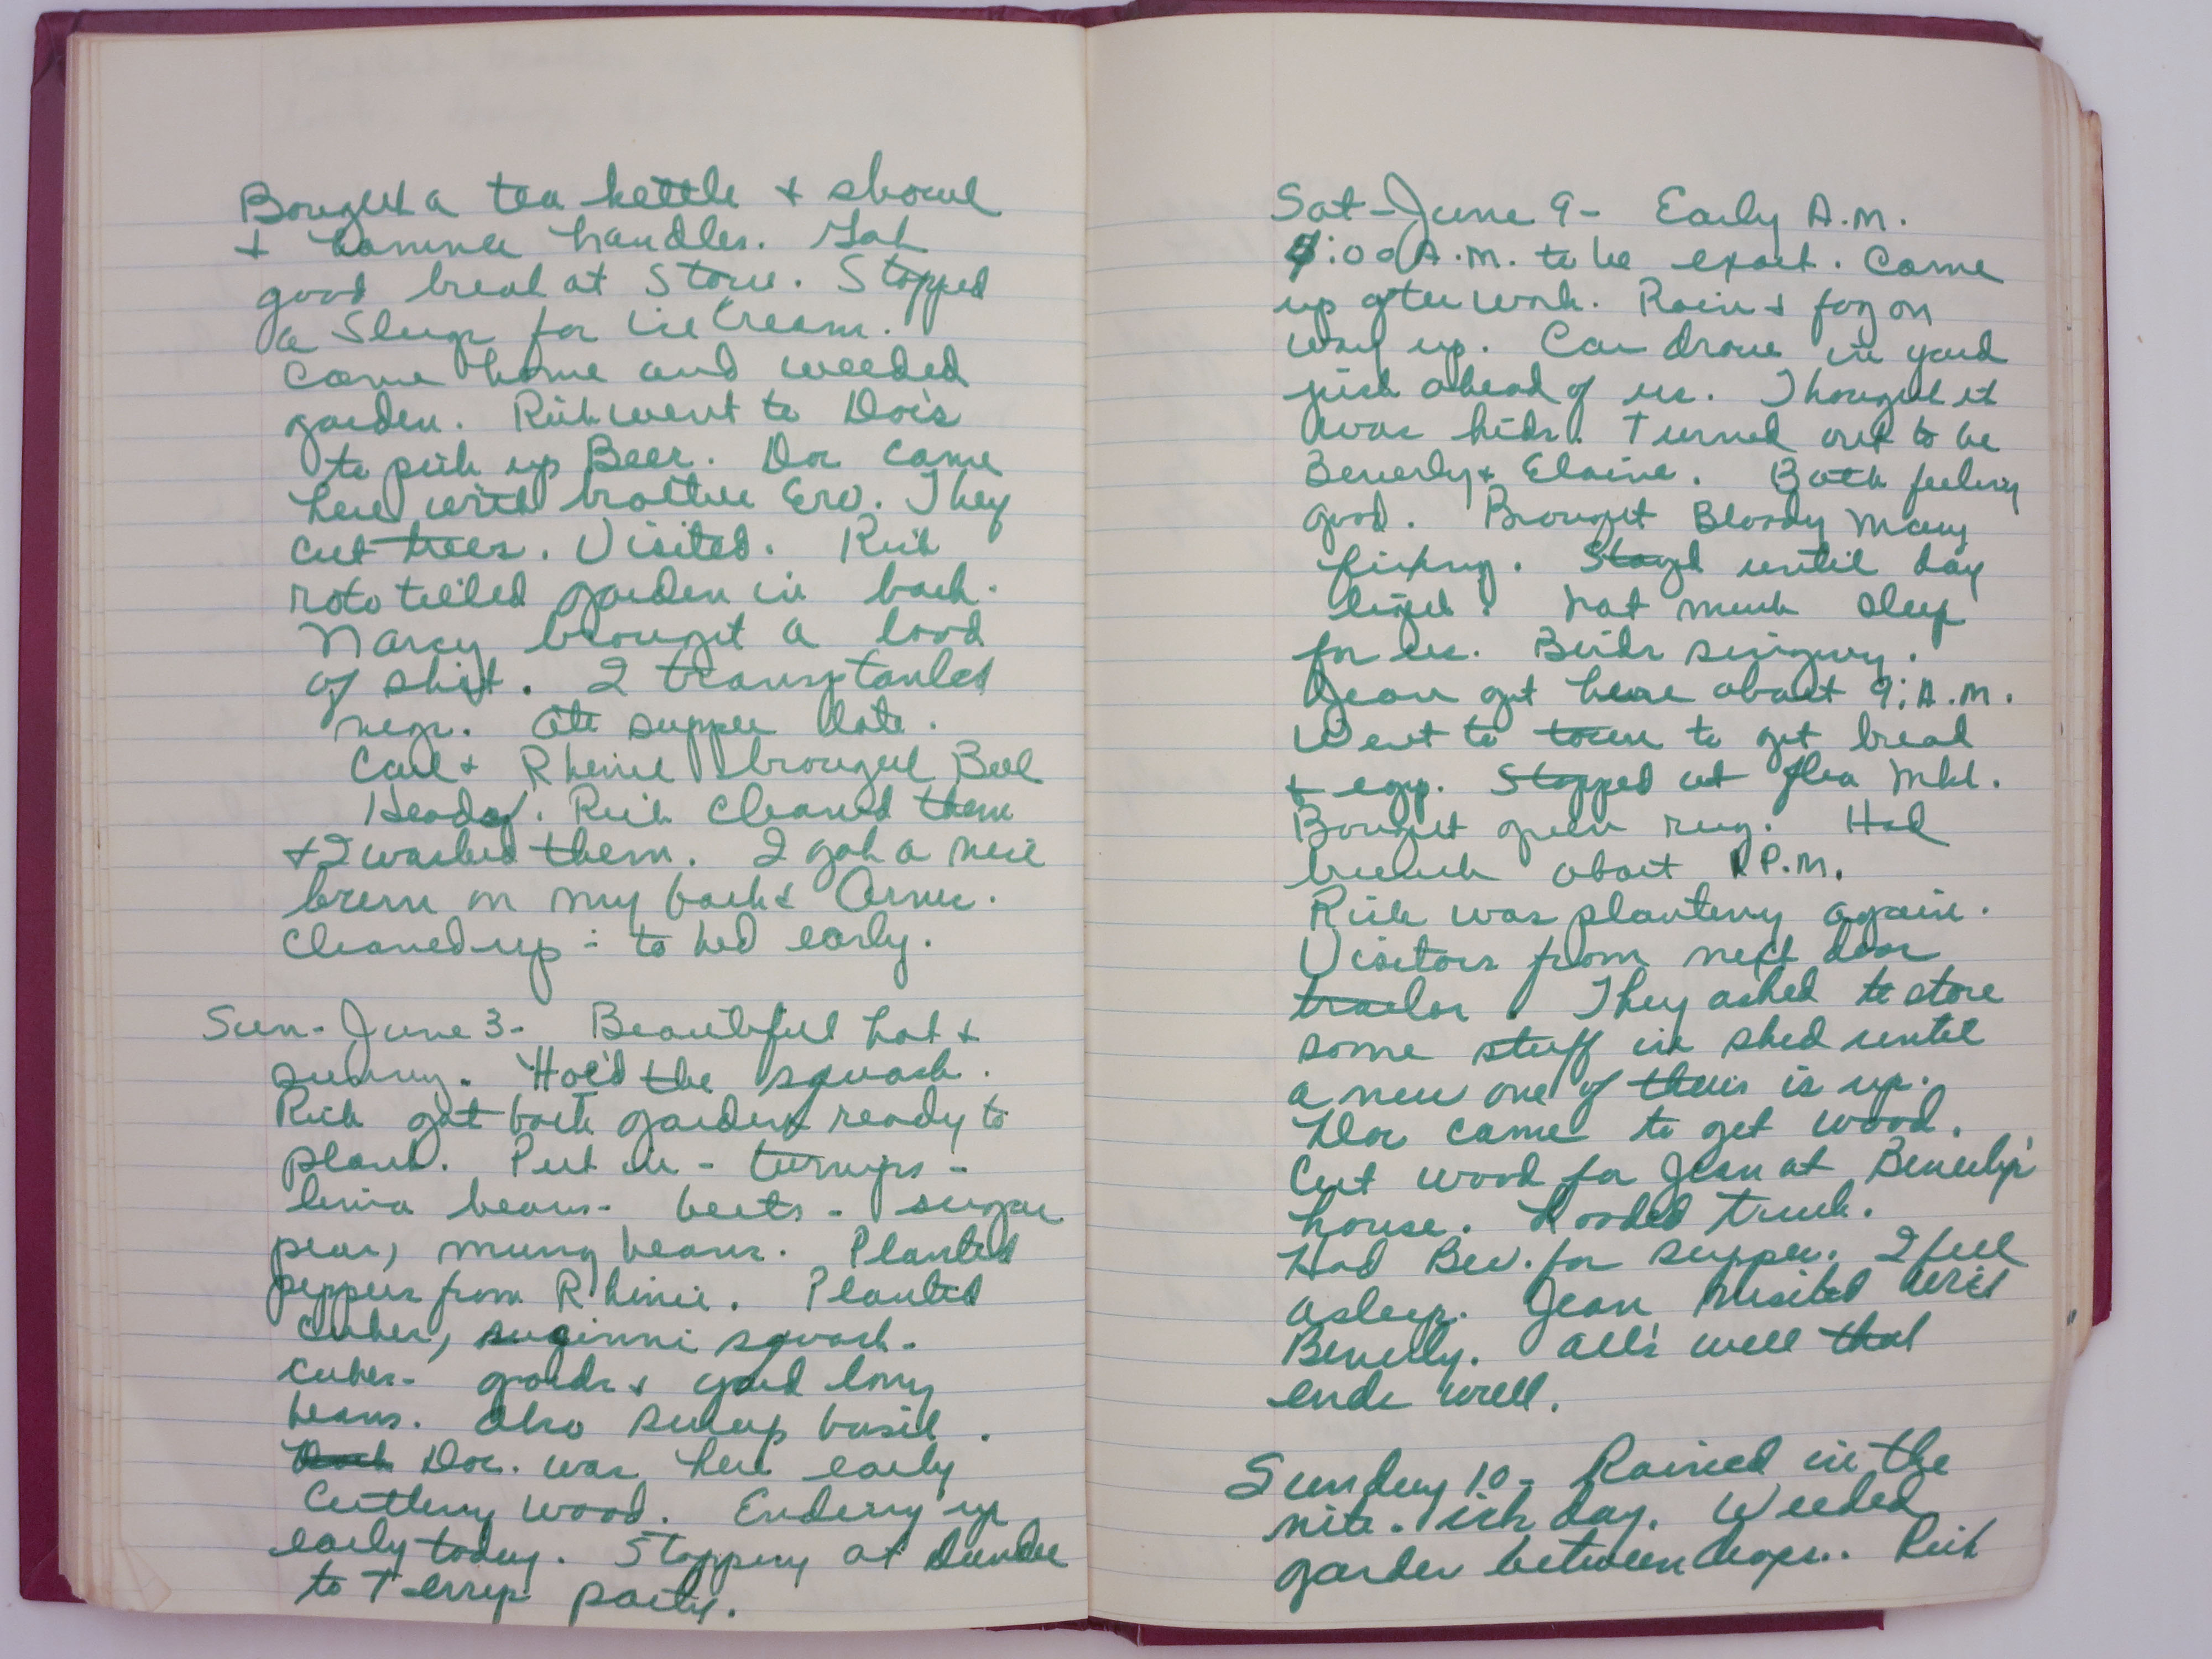 Bought a tea kettle + shovel
+ hammer handles. Got
good bread at Store. Stopped
a Sleep for ice Cream.
Came home and weeded
garden. Rich went to Doc's
to pick up Beer. Doc came
here with brother Erv. They
cut trees. Visited. Rich
roto tilled garden in back.
Narcy brought a load
of shit. I transptanled
negr. Ate supper late.
Carl + Rheinie brought Bull
Heads. Rich cleaned them
+ I washed them. I got a nice
burn on my back & Arms.
Cleaned up - to bed early.
Sun - June 3 - Beautiful hot +
sunny. Hoe'd the squash.
Rich got back garden ready to
plant. Put in - turnips -
lima beans - beets - sugar
peas, mung beans. Planted
peppers from Rhinie. Planted
cukes, suginni squash -
cukes - gords + yard long
beans. Also basil.
Doc. was here early
Cutting wood. Ending up
early today. Stopping at Dundee
to Terry's party.
Sat - June 9 - Early A.M.
:00 A.M. to be exact. Came
up after work. Rain + fog on
way up. Car drove in yard
just ahead of us. Thought it
was kids. Turned out to be
Beverly + Elaine. Both feeling
good. Brought Bloody Mary
fixing. Stayed until day
light. Not much sleep
for us. Birds singing.
Jean got here about 9: A.M.
Went to town to get bread
+ eggs. Stopped at flea Mkt.
Bought green rug. Had
brunch about 1 P.M.
Rich was planting again.
Visitors from next door
trailor. They asked to store
some stuff in shed until
a new one of theirs is up.
Doc came to get wood.
Cut wood for Jean at Beverly's
house. Loaded truck.
Had Bev. for supper. I fell
asleep. Jean visited with
Beverly. All's well that
ends well.
Sunday 10 - Rained in the
nite. Ich day. Weeded
garden between drops.. Rich